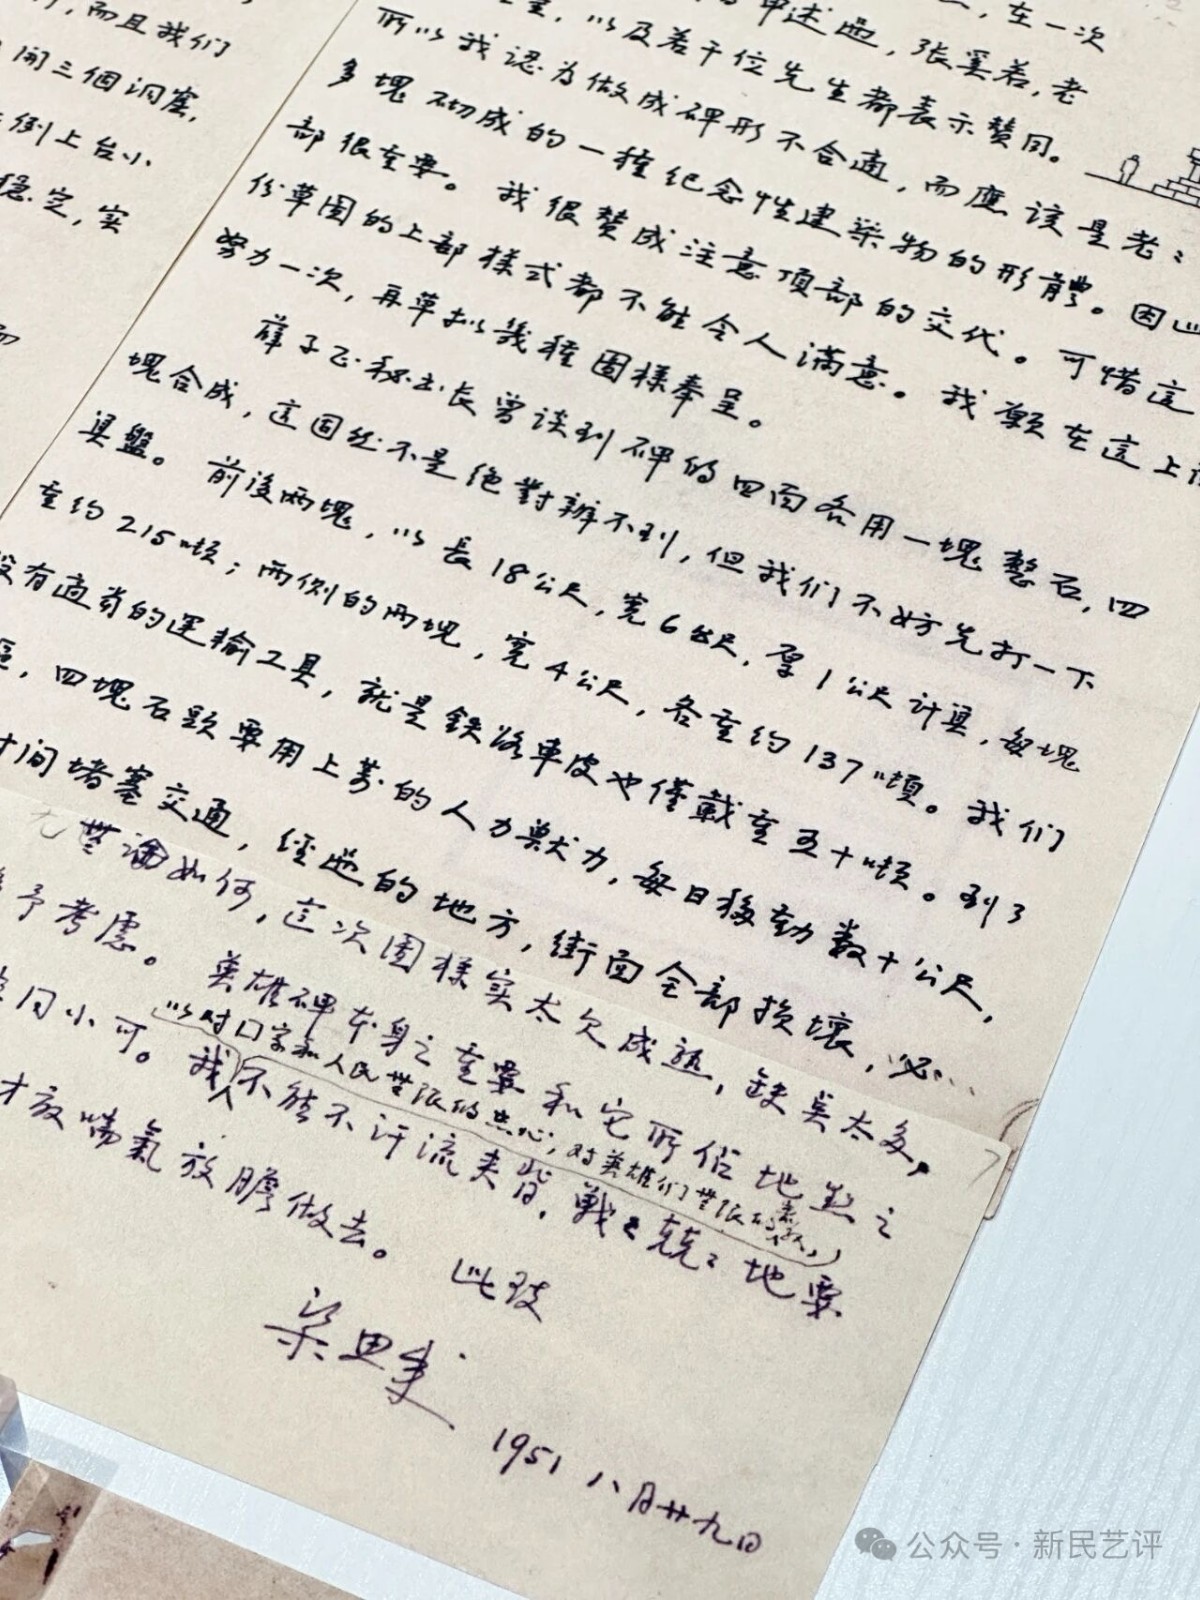 ，而且我们
開三個洞窟，
倒上台小
稳定，实
在一次
申述過，張奚若，老
，以及若干位先生都表示贊同。
所以我認为做成碑形不合適，而應該是老〻
多塊砌成的一種纪念性建築物的形體。因此
部很重要。我很赞成注意頂部的交代。可惜這
份草圖的上部樣式都不能令人滿意。我願在這上面
努力一次，再草拟幾種圖樣奉呈。
薛子正秘书长曾谈到碑的四面各用一塊整石，四
塊合成，这固然不是绝對辦不到，但我们不妨先打一下
算盤。前後兩塊，以長18公尺，宽6公尺，厚1公尺计算，每塊
重约215吨；两侧的两塊，宽4公尺，各重约137吨。我们
没有適当的運輸工具，就是鉄路車皮也僅載重五十吨。到了
區，四塊石头要用上萬的人力獸力，每日移動數十公尺，
时间堵塞交通，經過的地方，街面全部損壞，必…
无論如何，这次圖樣实太欠成熟，缺点太多，
予考慮。英雄碑本身之重要和它所佔地點之
以对国家和人民無限的忠心，对英雄们無限的
同小可。我不能不汗流夹背，戰〻兢〻地要
才放喘氣放膽做去。此致
梁思成
1951 八月廿九日
公众号·新民艺评